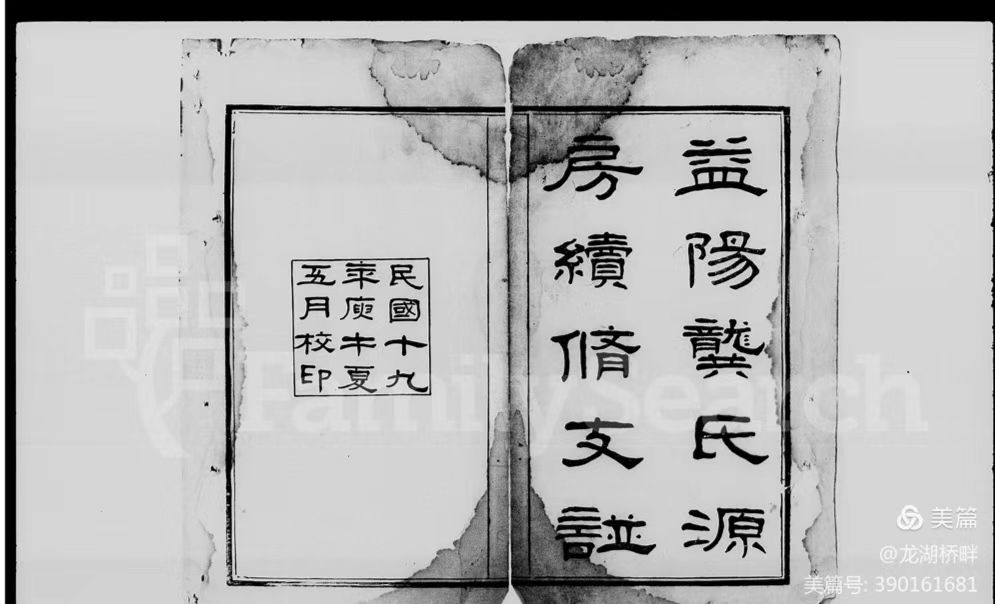 益陽龔氏源
房續脩支譜
民國十九
年庚午夏
五月校印
FamilySearch
美篇
@龙湖桥畔
美篇号: 390161681